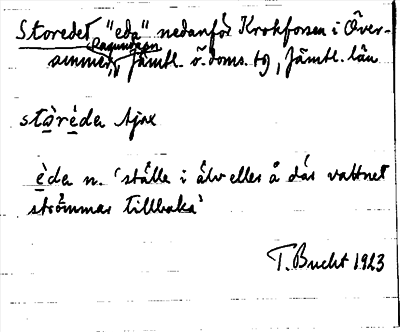 Storedet "eda" nedanför Krokforsen i Över-
Ragundasn
ammer, Jämtl. ö. doms. tg, Jämtl. län
stòrèda Ajax
èda n. 'ställe i älv eller å där vattnet
strömmar tillbaka'
T. Bucht 1923